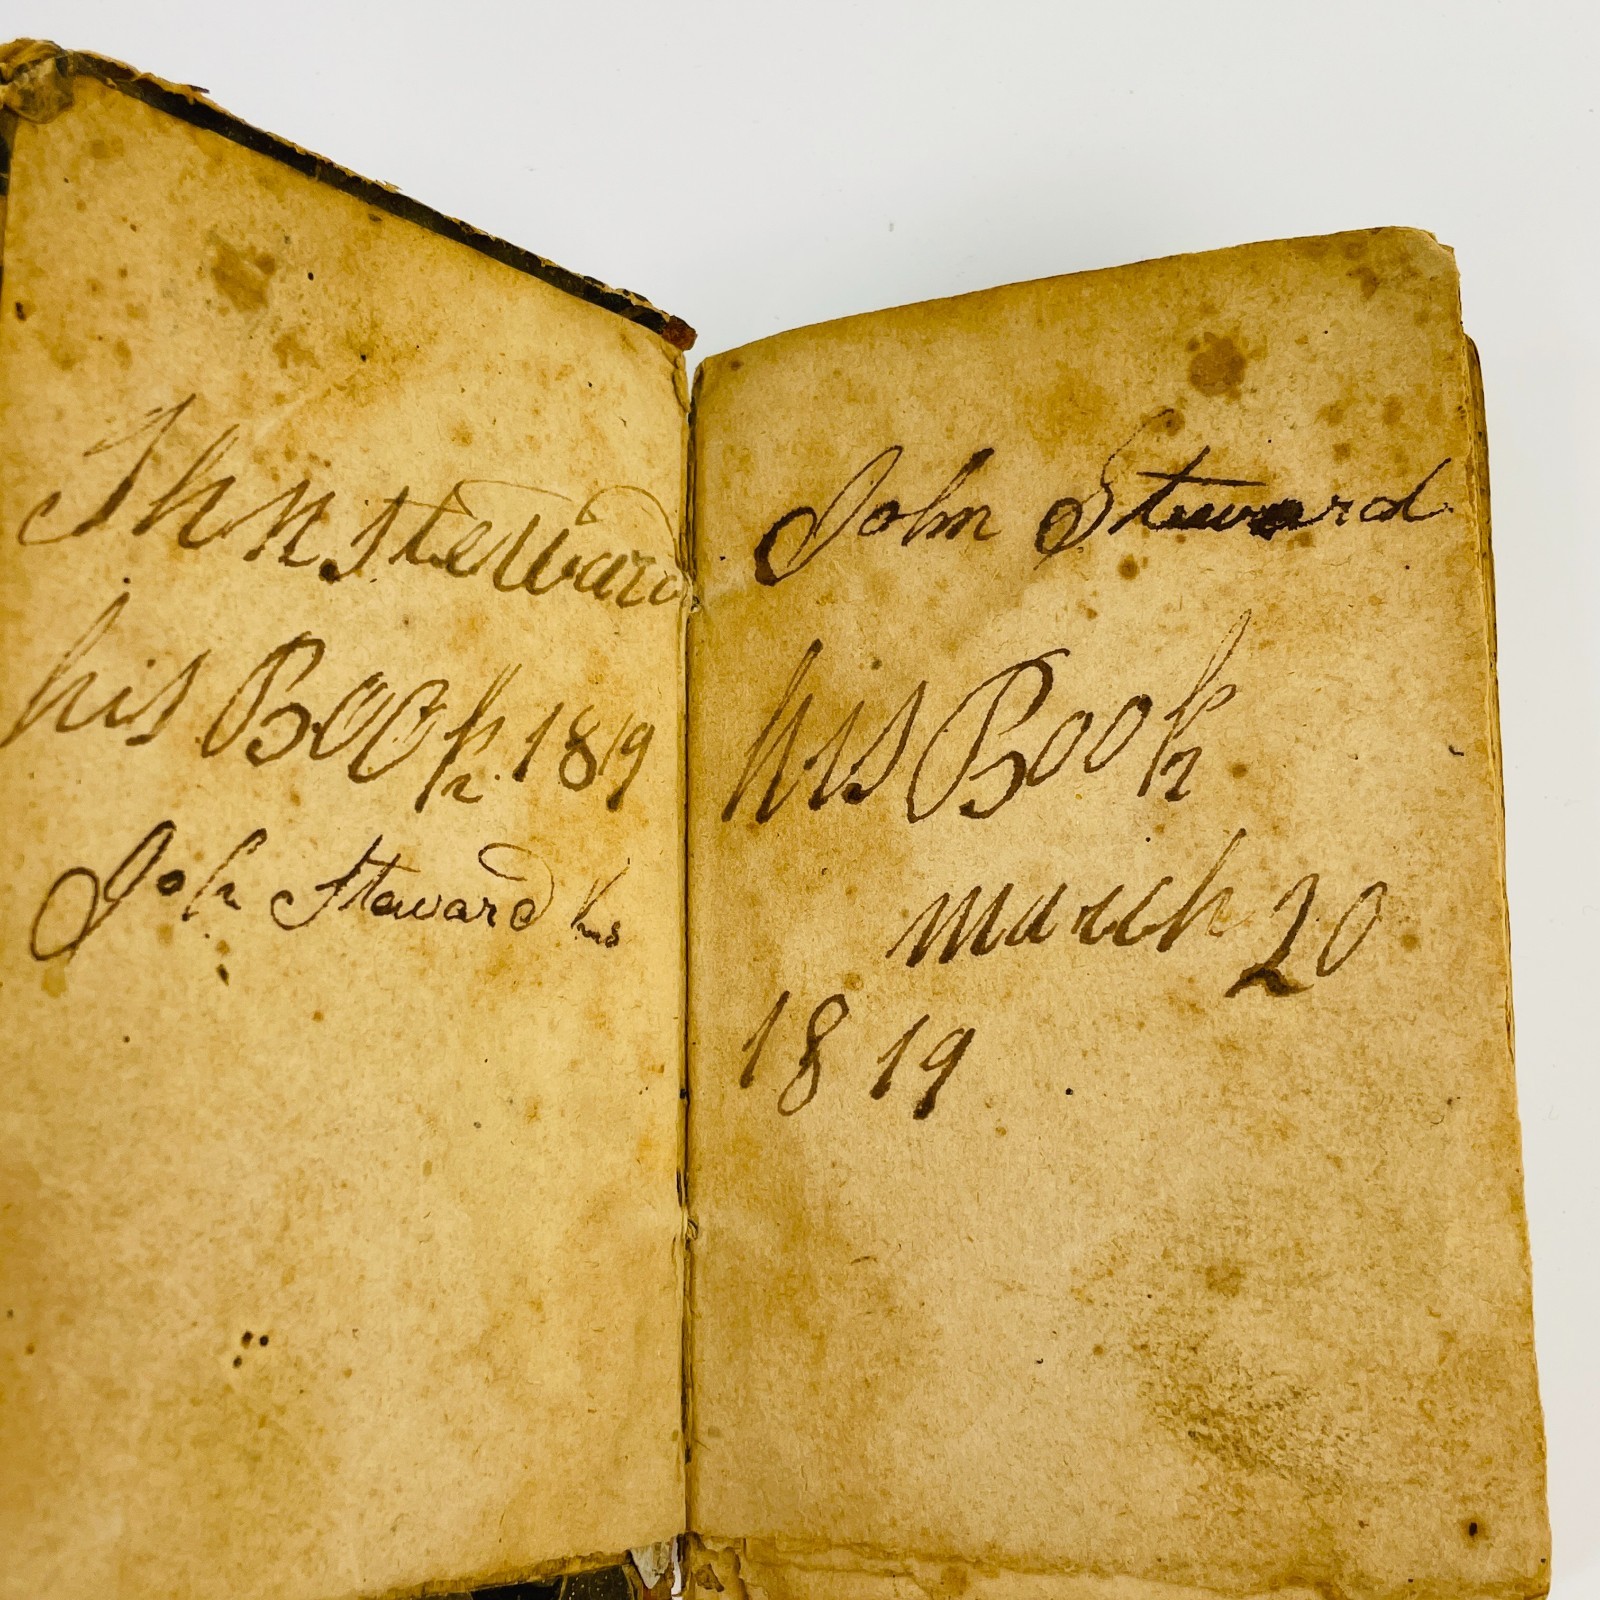 Jhn Steward
his Book 1819
Joh Steward his
John Steward
his Book
march 20
1819